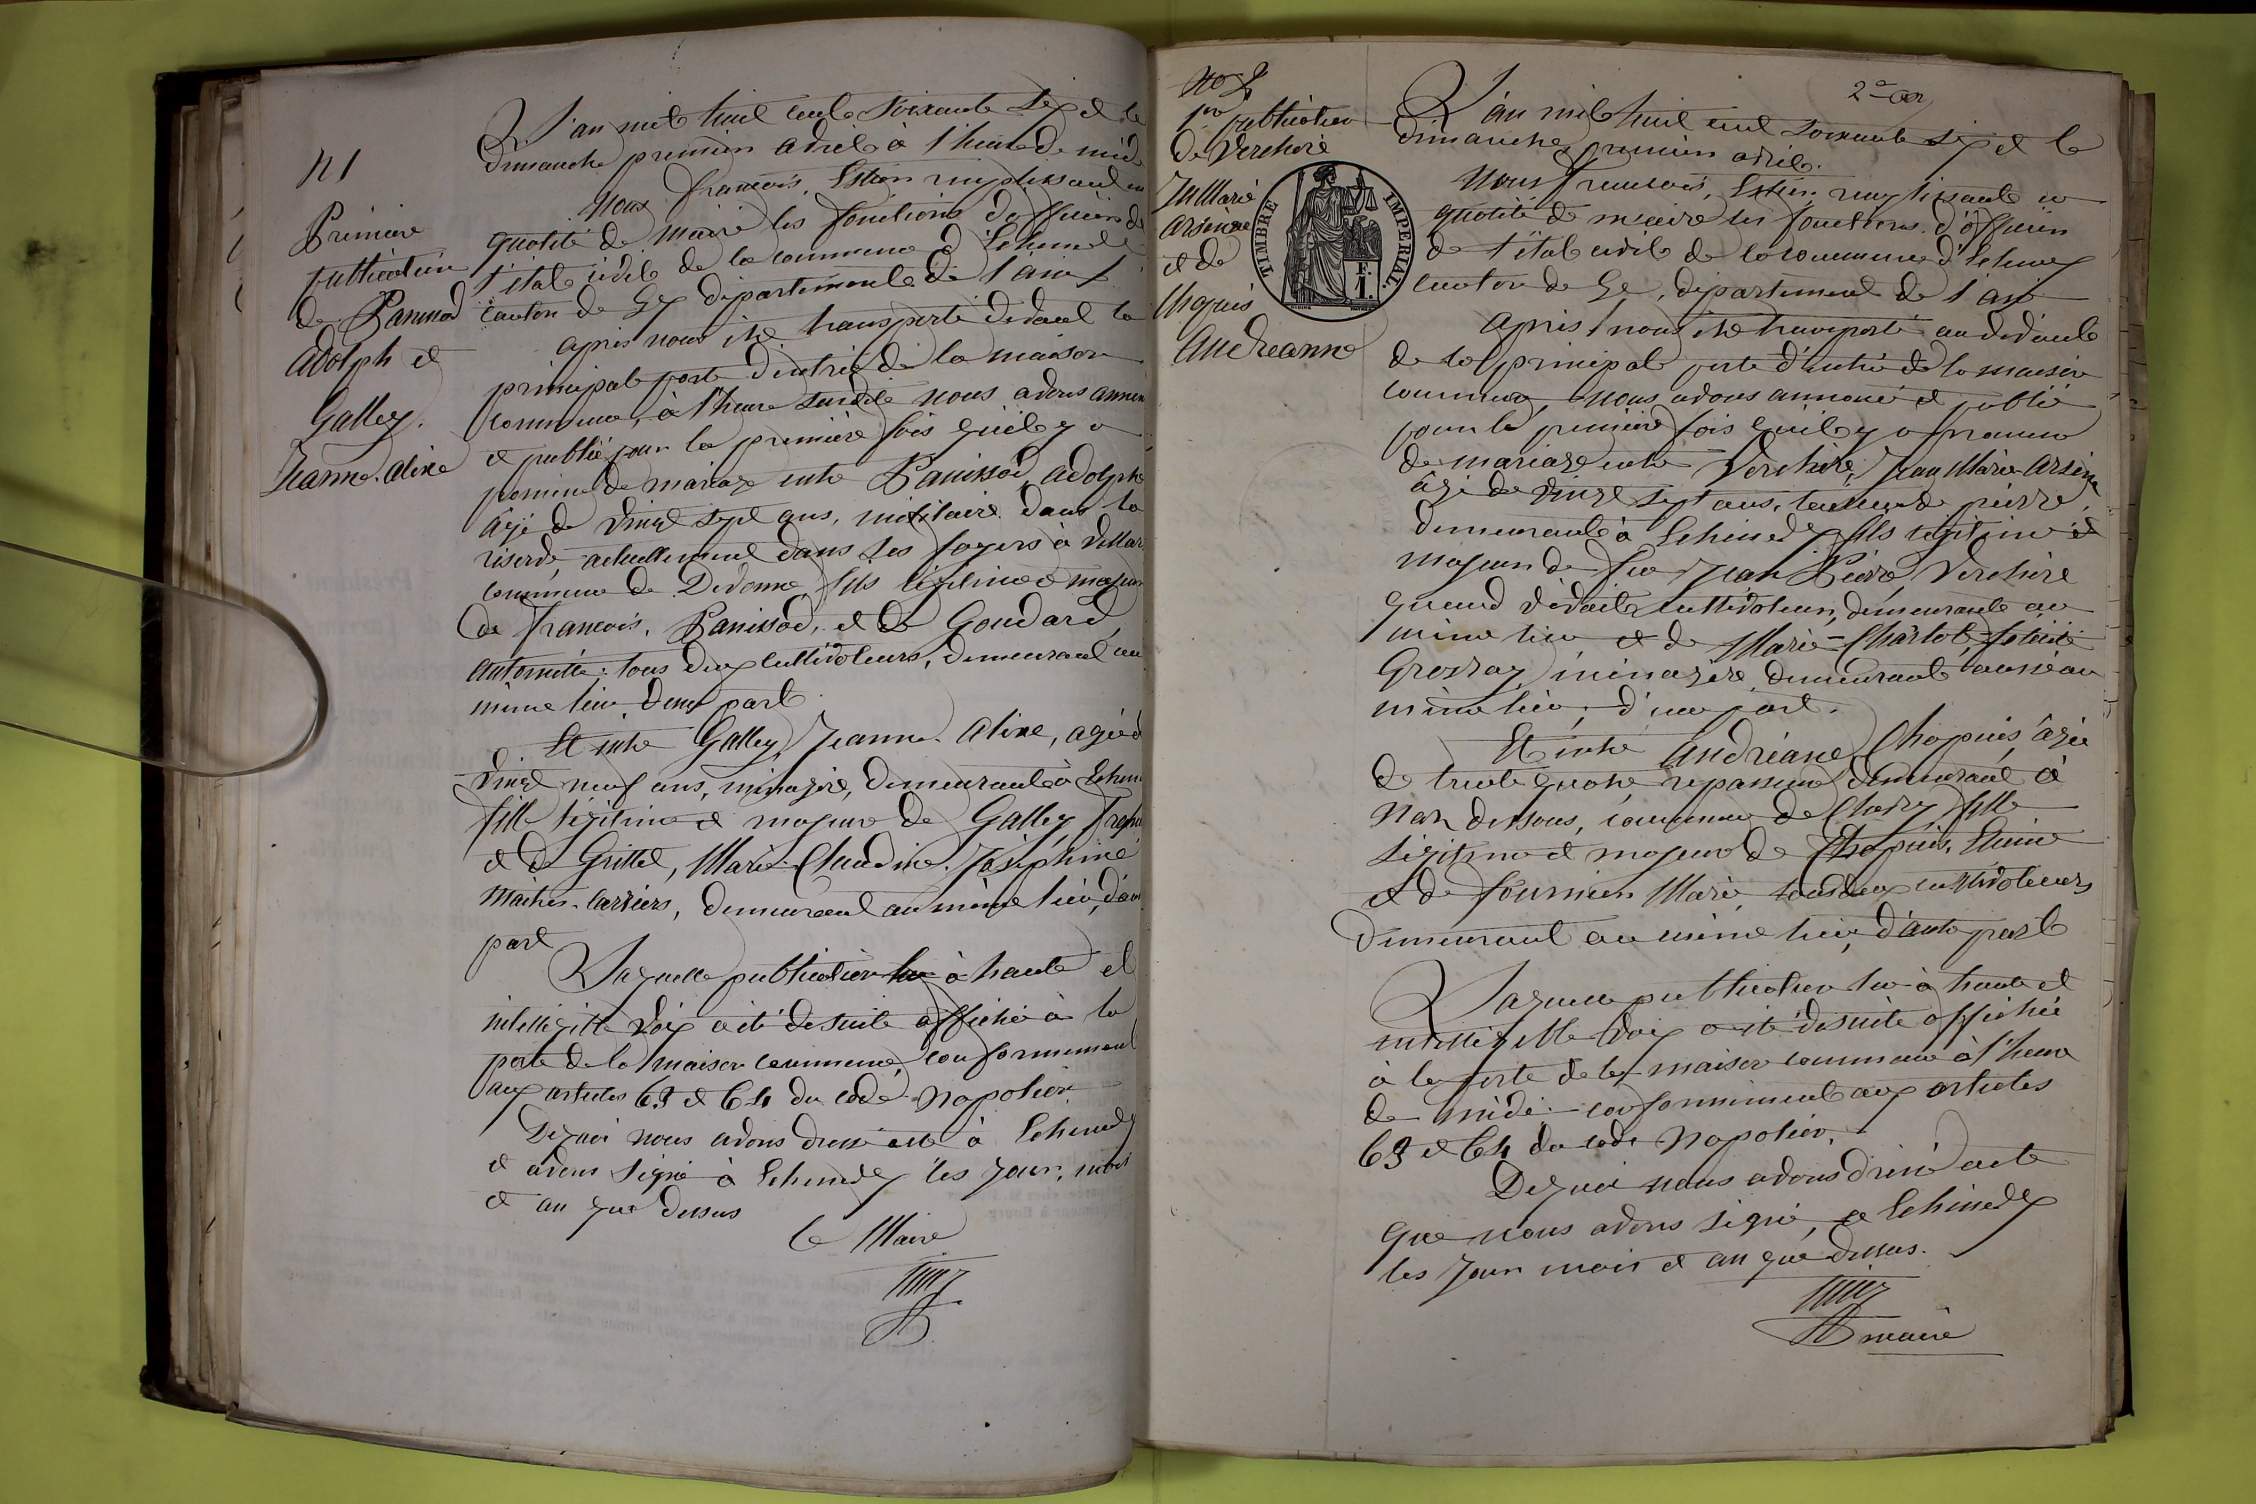 N 1
Première
publication
de Panissod
adolph et
Galley.
Jeanne. Aline
L'an mil huit cent soixante six et le
dimanche premier avril à l'heure de midi
Nous françois, remplissant en
qualité de maire les fonctions d'officier de
l'état civil de la commune d'Echenevex
canton de Gex département de l'ain
après nous être transporté devant la
principale porte d'entrée de la maison
commune, à l'heure susdite nous avons annoncé
et publié pour la première fois qu'il y a
promesse de mariage entre Panissod, adolphe
âgé de vingt sept ans, militaire dans la
réserve, actuellement dans ses foyers à
commune de Divonne, fils légitime et majeur
de françois, Panissod, et de Goudard
antoinette, tous deux cultivateurs, demeurant au
même lieu d'une part
Et entre Galley, Jeanne. Aline, agée de
vingt neuf ans, ménagère, demeurante à Echen
fille légitime et majeure de Galley,
et de Grittet, Marie. Claudine. Joséphine
demeurant au même lieu, d'autre
part
Laquelle publication lue à haute et
intelligible voix a été de suite affiché à la
porte de la maison commune, conformément
aux articles 63 et 64 du code Napoléon
De quoi nous avons dressé acte à Echenevex
et avons signé à Echenevex les jour, mois
et an que dessus
le Maire
2
No 2
1re publication
de Verchère
Jn Marie
arsène
et de
Chapuis
Andreanne
TIMBRE IMPÉRIAL
L'an mil huit cent soixante six et le
dimanche premier avril.
Nous francois, remplissant en
qualité de maire les fonctions d'officier
de l'état civil de la commune d'Echenevex
canton de Gex, département de l'ain
Après nous être transporté au devant
de la principale porte d'entrée de la maison
commune, nous avons annoncé et publié
pour la première fois qu'il y a promesse
de mariage entre Verchère, Jean Marie Arsène
âgé de vingt sept ans, tailleur de pierre,
demeurant à Echenevex fils légitime et
majeur de feu Jean Pierre Verchère
quand vivait cultivateur, demeurant au
même lieu et de Marie-Charlotte,
Grosrey, ménagère, demeurant aussi au
même lieu, d'une part.
Et entre Andréane, Chapuis, âgée
de trente quatre, repasseuse demeurant à
dessous, commune de fille
légitime et majeure de Chapuis, Etienne
et de fournier Marie, tous deux cultivateurs
demeurant au même lieu, d'autre part
Laquelle publication lue à haute et
intelligible voix a été de suite affichée
à la porte de la maison commune à l'heure
de midi conformément aux articles
63 et 64 du code Napoléon.
De quoi nous avons dressé acte
que nous avons signé, à Echenevex
les jour mois et an que dessus.
maire